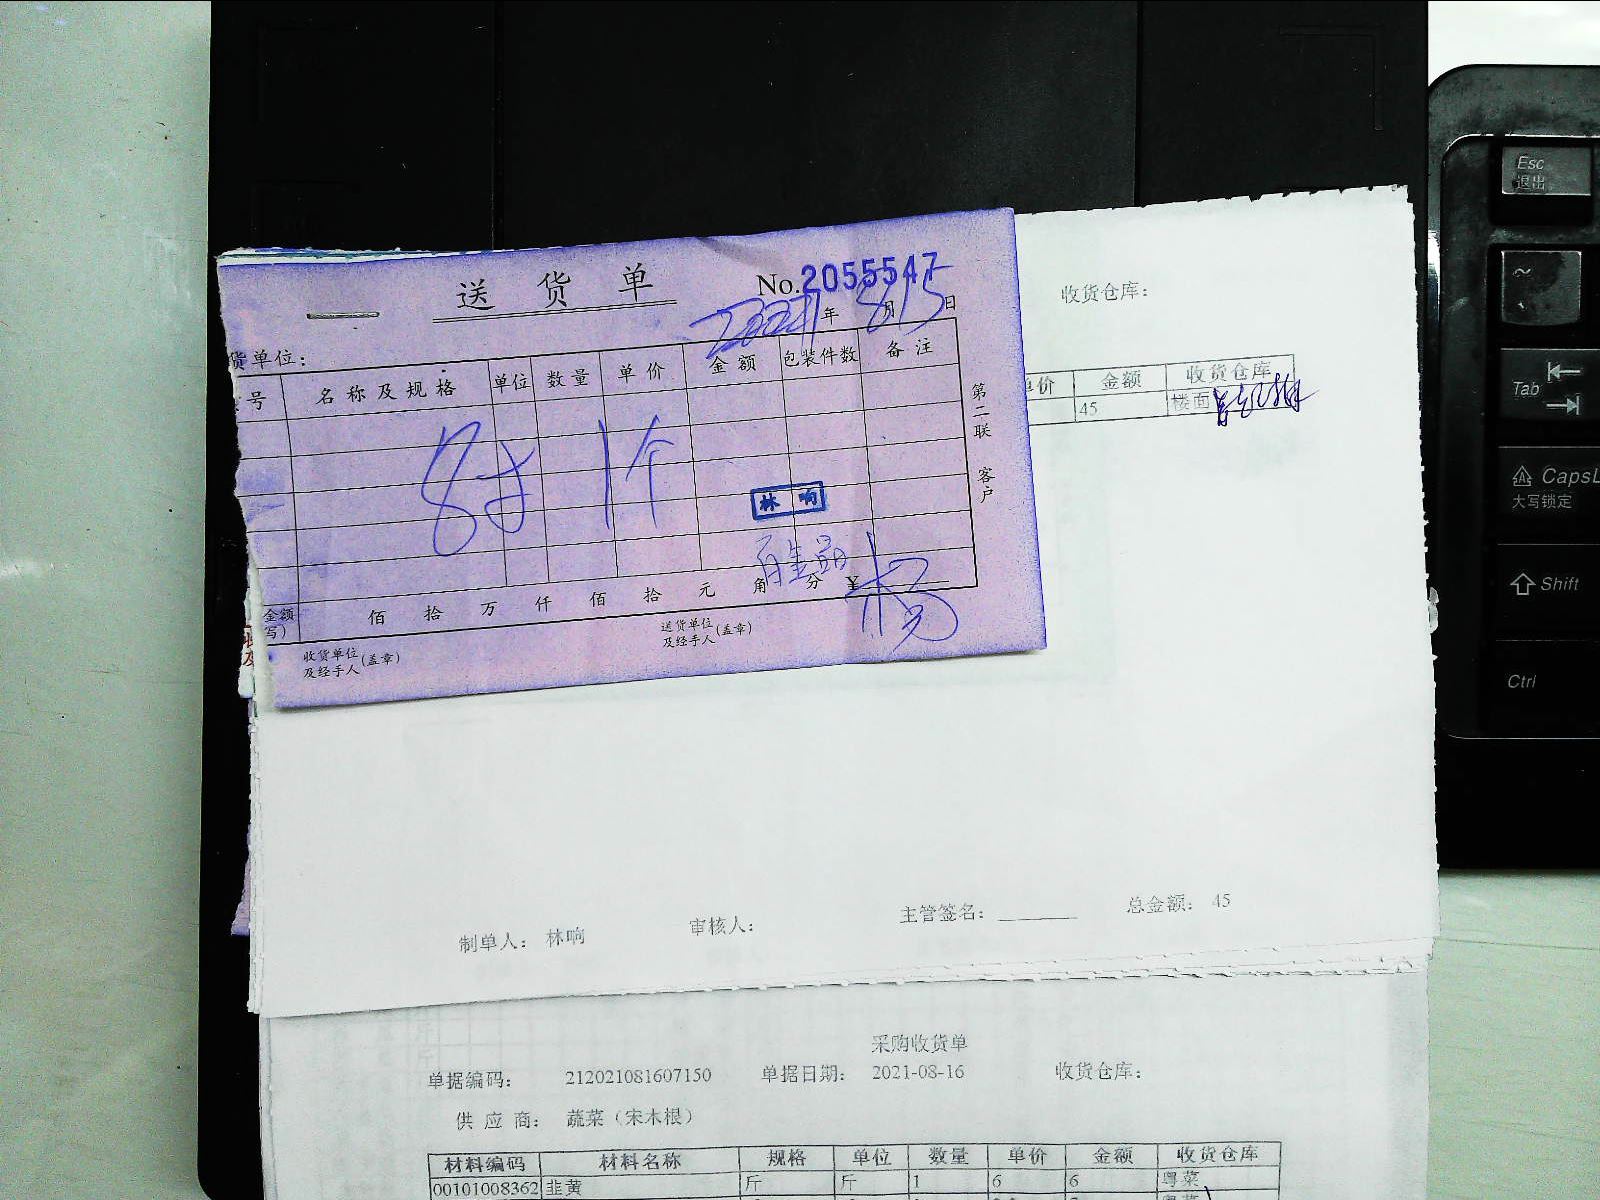 送货单 No.2055547
2021年8月15日
货单位：
号 名称及规格 单位 数量 单价 金额 包装件数 备注
8寸 1个
林响
金额 佰 拾 万 仟 佰 拾 元 角 分 ¥
写）
收货单位（盖章）
及经手人
送货单位（盖章）
及经手人
第二联 客户
收货仓库：
单价 金额 收货仓库
45 楼面
制单人： 林响 审核人： 主管签名： 总金额： 45
采购收货单
单据编码： 212021081607150 单据日期： 2021-08-16 收货仓库：
供应商： 蔬菜（宋木根）
材料编码 材料名称 规格 单位 数量 单价 金额 收货仓库
00101008362 韭黄 斤 斤 1 6 6 粤菜
Esc
退出
~
Tab
CapsL
大写锁定
Shift
Ctrl